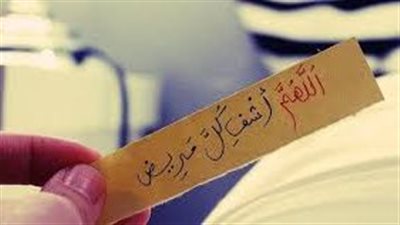 اَللَّهُمَّ أشفِ كُلَّ مَرِيض